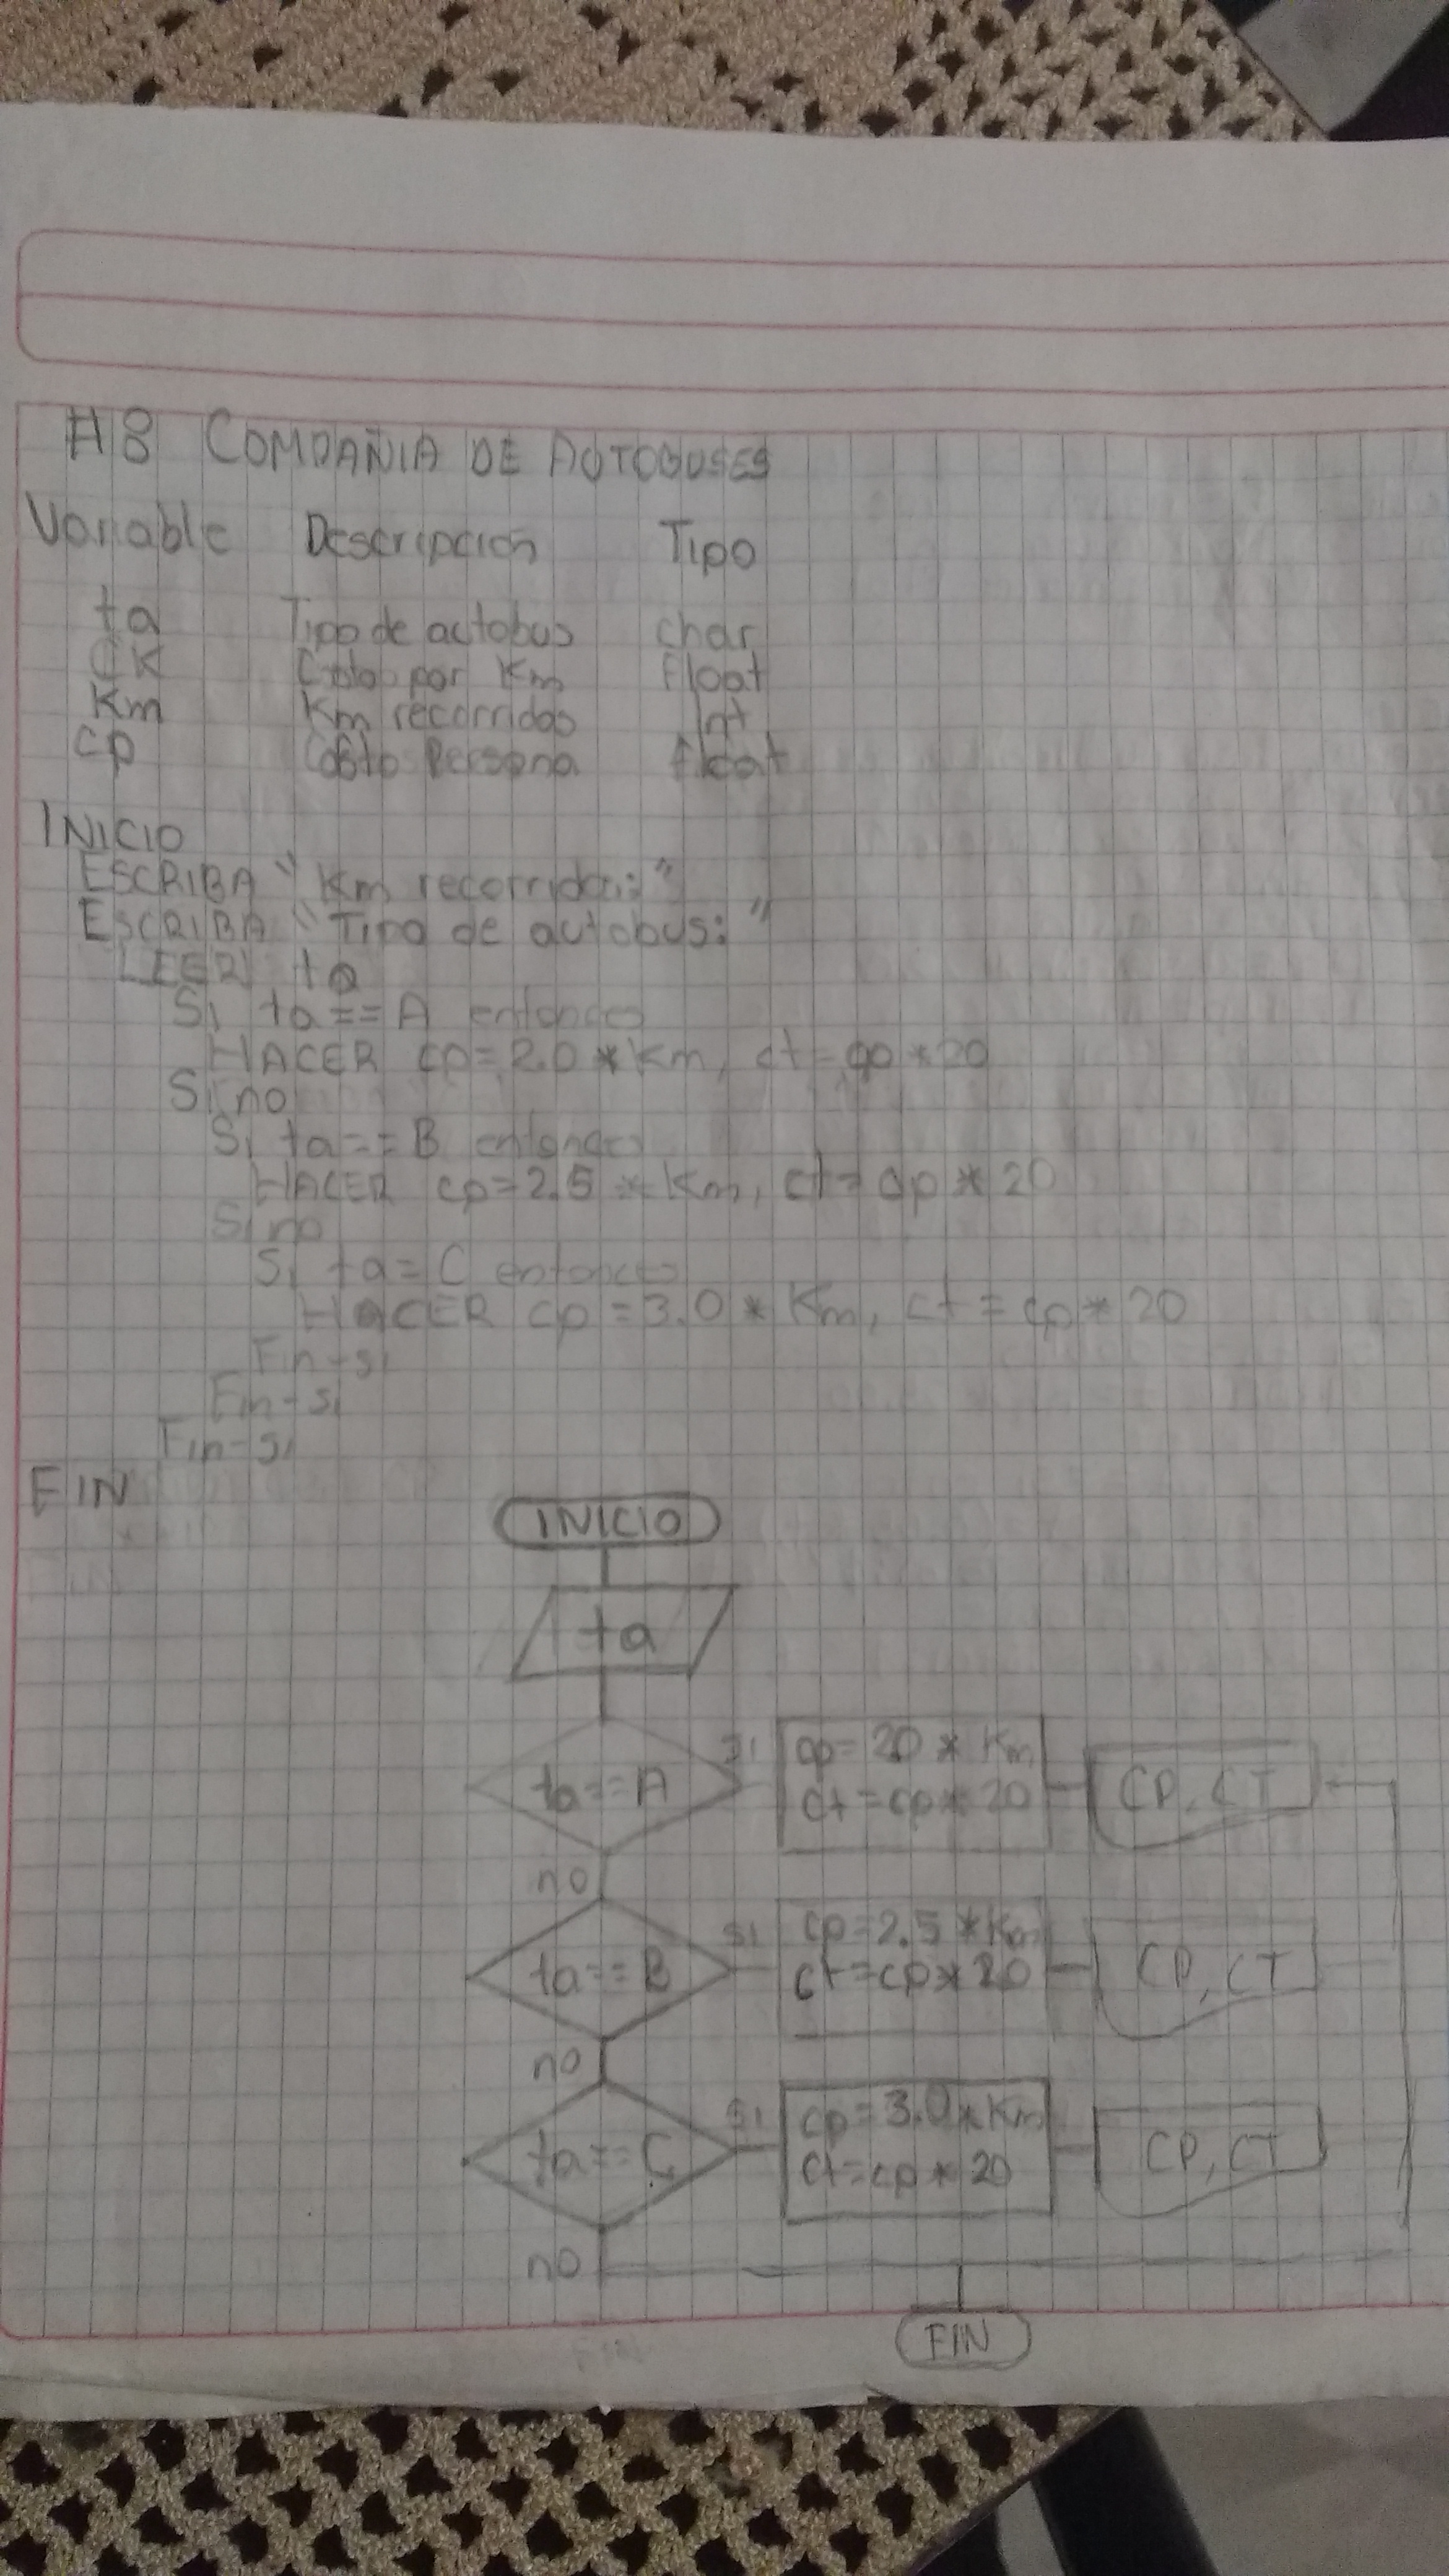 #8 COMPAÑIA DE AUTOBUSES
Variable Descripción Tipo
ta Tipo de autobus char
CK Costo por Km Float
Km Km recorridos Int
cp Costo Persona float
INICIO
ESCRIBA "Km recorridos:"
ESCRIBA "Tipo de autobus:"
LEER ta
Si ta==A entonces
HACER cp=2.0*Km, ct=cp*20
Si no
Si ta==B entonces
HACER cp=2.5*Km, ct=cp*20
Si no
Si ta=C entonces
HACER cp=3.0*Km, ct=cp*20
Fin-si
Fin-si
Fin-si
FIN
INICIO
ta
ta==A
si
cp=20*Km
ct=cp*20
CP, CT
no
ta==B
si
cp=2.5*Km
ct=cp*20
CP, CT
no
ta==C
si
cp=3.0*Km
ct=cp*20
CP, CT
no
FIN